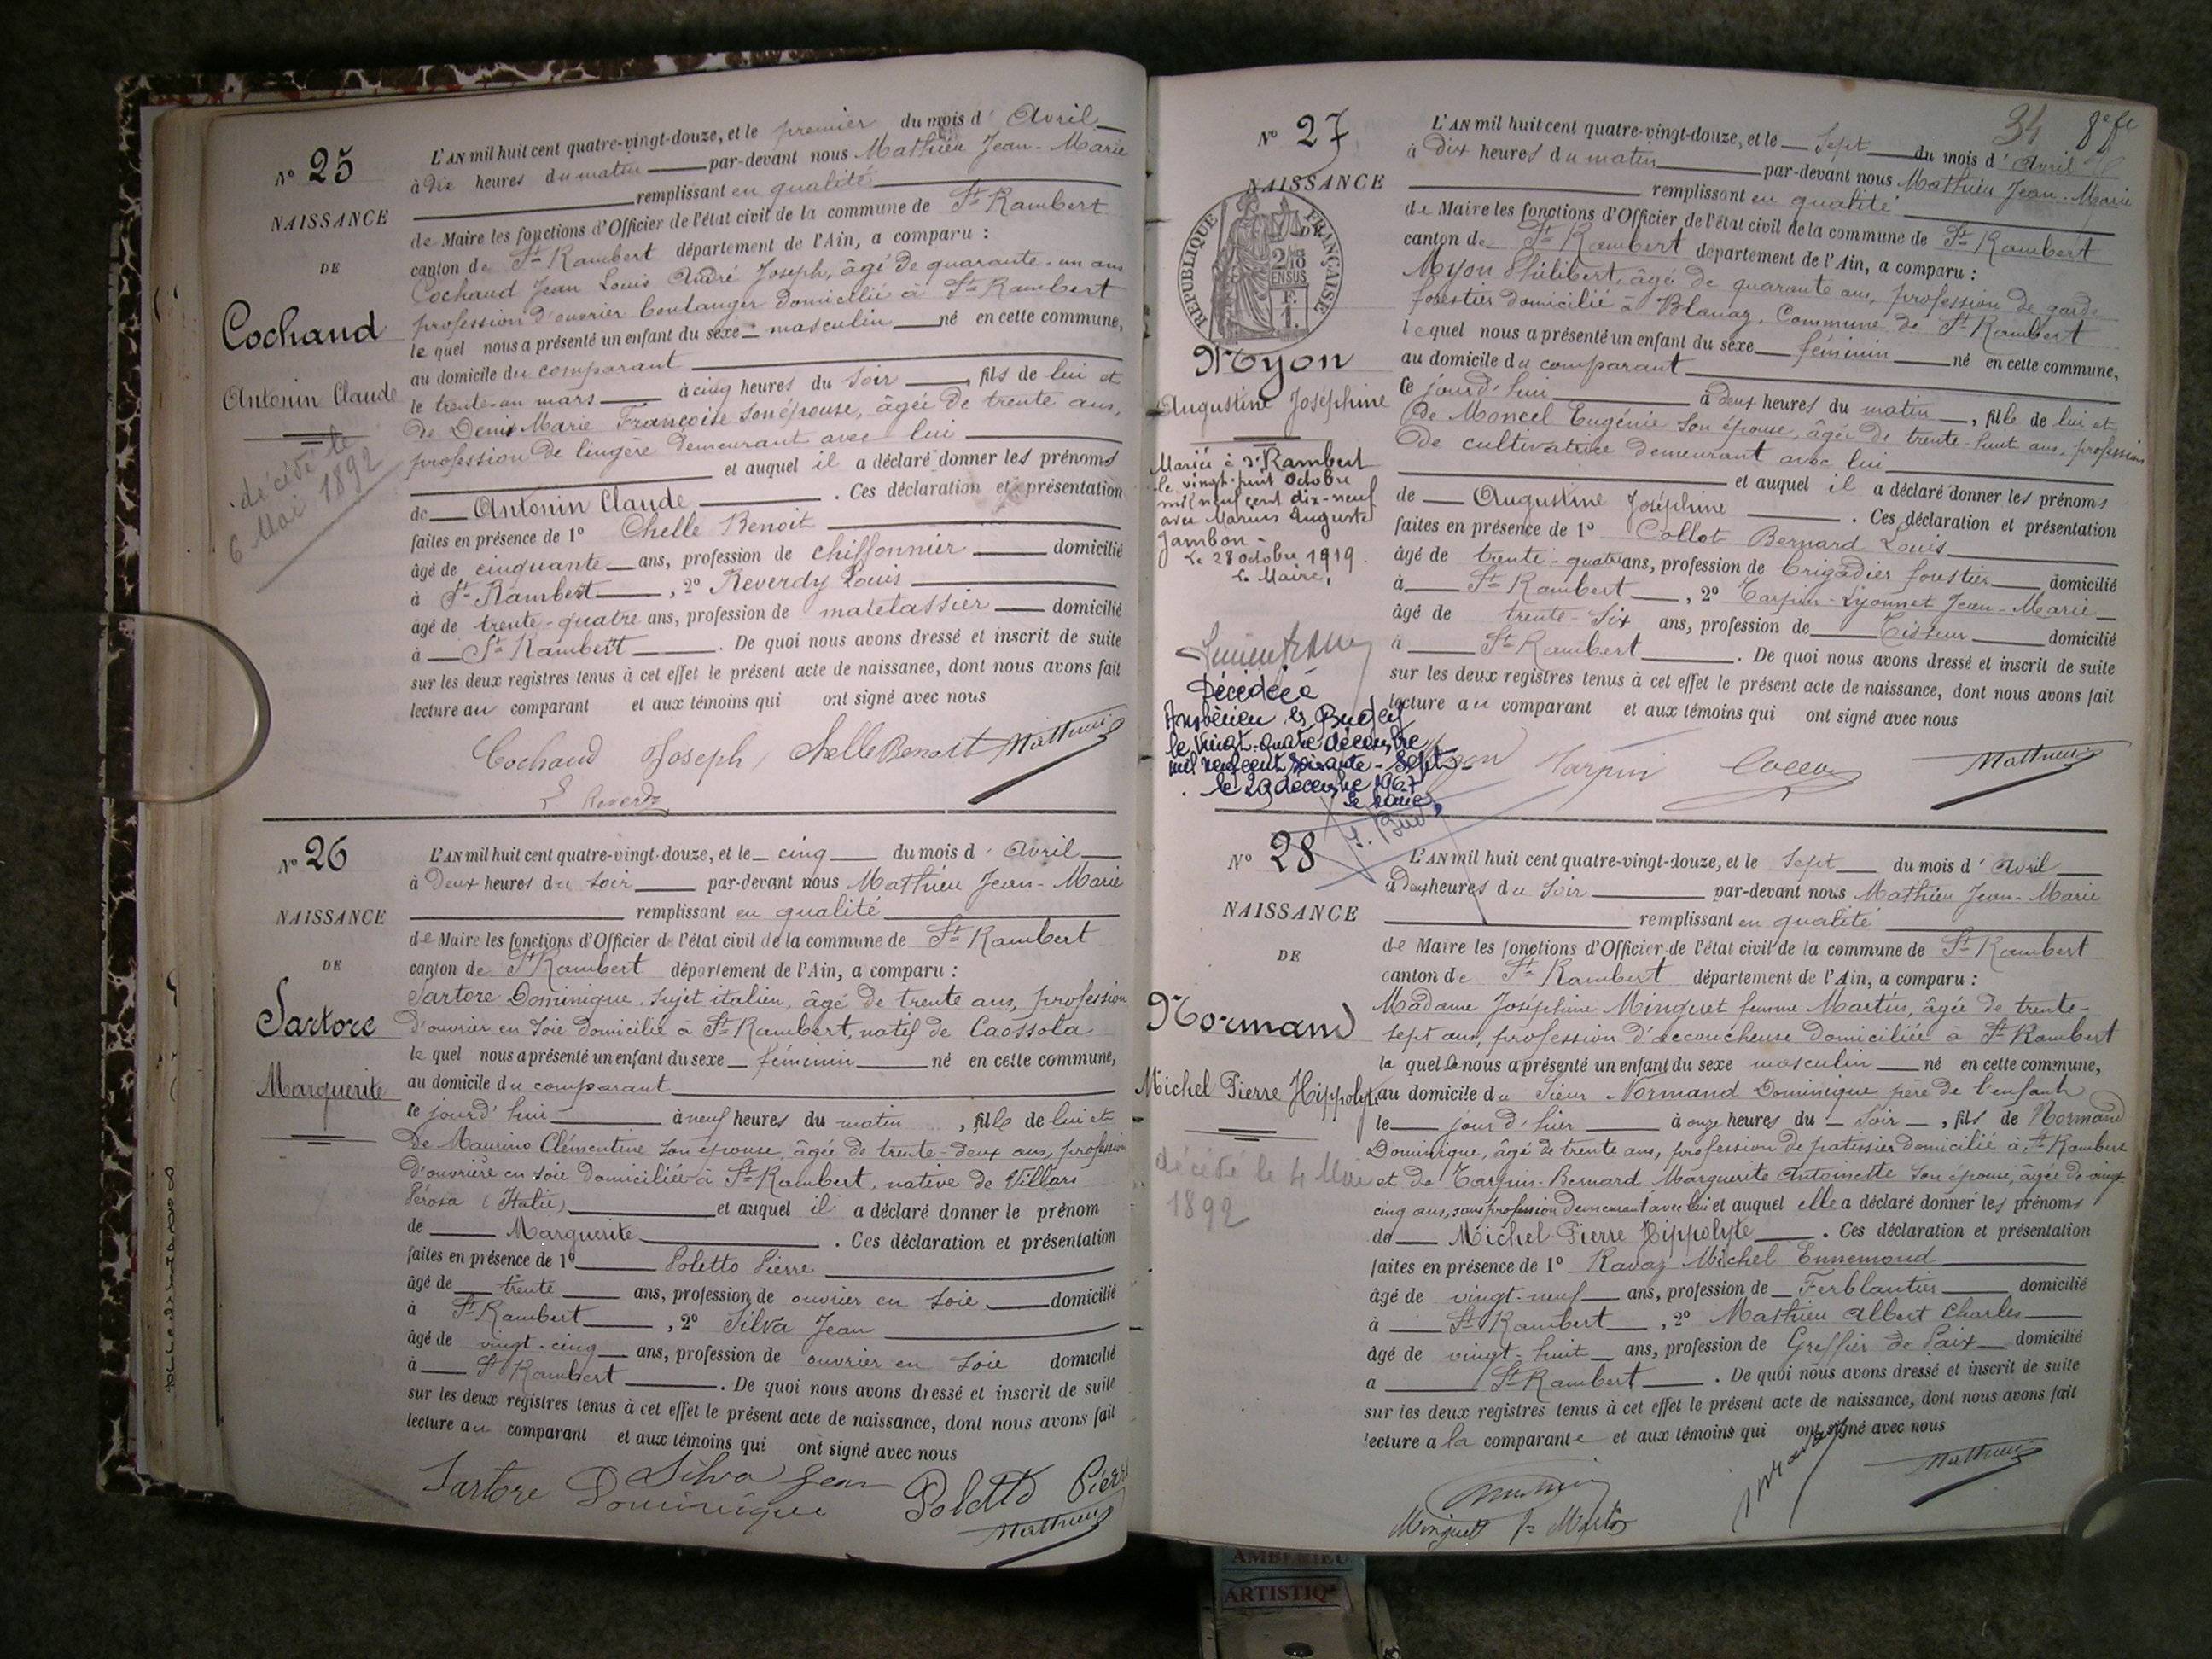 N° 25
NAISSANCE
DE
Cochand
Antonin Claude
décédé le
6 Mai 1892
L'AN mil huit cent quatre-vingt-douze, et le premier du mois d' Avril
à dix heures du matin par-devant nous Mathieu Jean-Marie
remplissant en qualité
de Maire les fonctions d'Officier de l'état civil de la commune de St Rambert
canton de St Rambert département de l'Ain, a comparu :
Cochand Jean Louis André Joseph, âgé de quarante-un ans
profession d'ouvrier boulanger domicilié à St Rambert
le quel nous a présenté un enfant du sexe masculin né en cette commune,
au domicile du comparant
le trente-un mars à cinq heures du soir, fils de lui et
de Denis Marie Françoise son épouse, âgée de trente ans,
profession de lingère demeurant avec lui
et auquel il a déclaré donner les prénoms
de Antonin Claude. Ces déclaration et présentation
faites en présence de 1° Chelle Benoit
âgé de cinquante ans, profession de chiffonnier domicilié
à St Rambert, 2° Reverdy Louis
âgé de trente-quatre ans, profession de matelassier domicilié
à St Rambert. De quoi nous avons dressé et inscrit de suite
sur les deux registres tenus à cet effet le présent acte de naissance, dont nous avons fait
lecture au comparant et aux témoins qui ont signé avec nous
Cochand Joseph Chelle Benoit Mathieu
L. Reverdy
N° 26
NAISSANCE
DE
Sartore
Marguerite
L'AN mil huit cent quatre-vingt-douze, et le cinq du mois d' Avril
à deux heures du soir par-devant nous Mathieu Jean-Marie
remplissant en qualité
de Maire les fonctions d'Officier de l'état civil de la commune de St Rambert
canton de St Rambert département de l'Ain, a comparu :
Sartore Dominique, sujet italien, âgé de trente ans, profession
d'ouvrier en soie domicilié à St Rambert, natif de Caossola
le quel nous a présenté un enfant du sexe féminin né en cette commune,
au domicile du comparant
ce jourd'hui à neuf heures du matin, fille de lui et
de Maurino Clémentine son épouse, âgée de trente-deux ans, profession
d'ouvrière en soie domiciliée à St Rambert, native de Villars
Pérosa (Italie) et auquel il a déclaré donner le prénom
de Marguerite. Ces déclaration et présentation
faites en présence de 1° Poletto Pierre
âgé de trente ans, profession de ouvrier en soie domicilié
à St Rambert, 2° Silva Jean
âgé de vingt-cinq ans, profession de ouvrier en soie domicilié
à St Rambert. De quoi nous avons dressé et inscrit de suite
sur les deux registres tenus à cet effet le présent acte de naissance, dont nous avons fait
lecture au comparant et aux témoins qui ont signé avec nous
Sartore Dominique Silva Jean Poletto Pierre
Mathieu
34 8e ft
N° 27
NAISSANCE
RÉPUBLIQUE FRANÇAISE
2/10 EN SUS
F. 1.
Myon
Augustine Joséphine
Mariée à St Rambert
le vingt-huit Octobre
mil neuf cent dix-neuf
avec Marius Auguste
Jambon -
Le 28 Octobre 1919
Le Maire,
Décédée à
Ambérieu en Bugey
le vingt-quatre décembre
mil neuf cent soixante-sept
le 29 décembre 1967
le maire,
L'AN mil huit cent quatre-vingt-douze, et le sept du mois d' Avril
à dix heures du matin par-devant nous Mathieu Jean-Marie
remplissant en qualité
de Maire les fonctions d'Officier de l'état civil de la commune de St Rambert
canton de St Rambert département de l'Ain, a comparu :
Myon Philibert, âgé de quarante ans, profession de garde
forestier domicilié à Blanaz, Commune de St Rambert
le quel nous a présenté un enfant du sexe féminin né en cette commune,
au domicile du comparant
ce jourd'hui à deux heures du matin, fille de lui et
de Moncel Eugénie son épouse, âgée de trente-huit ans, profession
de cultivatrice demeurant avec lui
et auquel il a déclaré donner les prénoms
de Augustine Joséphine. Ces déclaration et présentation
faites en présence de 1° Collot Bernard Louis
âgé de trente-quatre ans, profession de brigadier forestier domicilié
à St Rambert, 2° Tarpin-Lyonnet Jean-Marie
âgé de trente-six ans, profession de Tisseur domicilié
à St Rambert. De quoi nous avons dressé et inscrit de suite
sur les deux registres tenus à cet effet le présent acte de naissance, dont nous avons fait
lecture au comparant et aux témoins qui ont signé avec nous
Myon Tarpin Mathieu
N° 28
NAISSANCE
DE
Normand
Michel Pierre Hippolyte
décédé le 4 Mai
1892
L'AN mil huit cent quatre-vingt-douze, et le sept du mois d' Avril
à deux heures du soir par-devant nous Mathieu Jean-Marie
remplissant en qualité
de Maire les fonctions d'Officier de l'état civil de la commune de St Rambert
canton de St Rambert département de l'Ain, a comparu :
Madame Joséphine Minguet femme Martin, âgée de trente-
sept ans, profession d'accoucheuse domiciliée à St Rambert
la quelle nous a présenté un enfant du sexe masculin né en cette commune,
au domicile du Sieur Normand Dominique père de l'enfant
le jour d'hier à onze heures du soir, fils de Normand
Dominique, âgé de trente ans, profession de patissier domicilié à St Rambert
et de Tarpin-Bernard Marguerite Antoinette son épouse, âgée de vingt-
cinq ans, sans profession demeurant avec lui et auquel elle a déclaré donner les prénoms
de Michel Pierre Hippolyte. Ces déclaration et présentation
faites en présence de 1° Ravaz Michel Ennemond
âgé de vingt-neuf ans, profession de Ferblantier domicilié
à St Rambert, 2° Mathieu Albert Charles
âgé de vingt-huit ans, profession de Greffier de Paix domicilié
a St Rambert. De quoi nous avons dressé et inscrit de suite
sur les deux registres tenus à cet effet le présent acte de naissance, dont nous avons fait
lecture a la comparante et aux témoins qui ont signé avec nous
Mathieu
Minguet f. Martin
AMBERIEU
ARTISTIQ